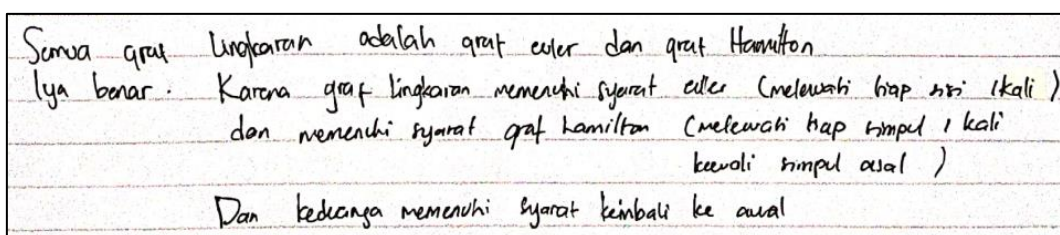 Semua graf lingkaran adalah graf euler dan graf Hamilton
Iya benar. Karena graf lingkaran memenuhi syarat euler (melewati tiap sisi 1 kali)
dan memenuhi syarat graf hamilton (melewati tiap simpul 1 kali
kecuali simpul asal)
Dan keduanya memenuhi syarat kembali ke awal